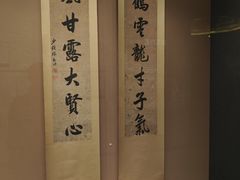 鶴雲龍才子氣
風甘露大賢心